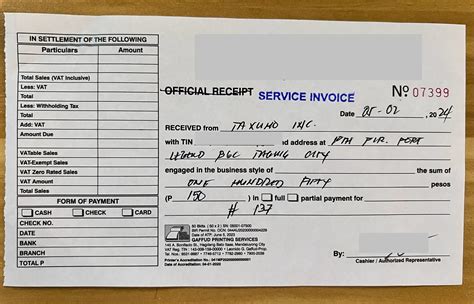 IN SETTLEMENT OF THE FOLLOWING
Particulars Amount
Total Sales (VAT Inclusive)
Less: VAT
Total
Less: Withholding Tax
Total
Add: VAT
Amount Due
VATable Sales
VAT-Exempt Sales
VAT Zero Rated Sales
VAT Amount
Total Sales
FORM OF PAYMENT
CASH CHECK CARD
CHECK NO.
DATE
BANK
BRANCH
TOTAL P
OFFICIAL RECEIPT SERVICE INVOICE No 07399
Date 05-02, 2024
RECEIVED from TAXUMO INC.
with TIN and address at FORT
BGC TAGUIG CITY
engaged in the business style of
the sum of ONE HUNDRED FIFTY pesos
(P 150 ) In full partial payment for
# 137
GAFFUD PRINTING SERVICES
By:
Cashier / Authorized Representative